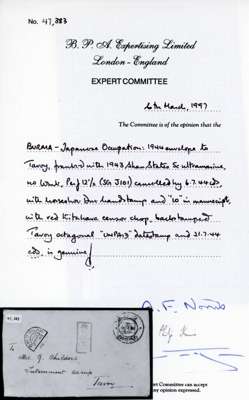 No. 47,383
B. P. A. Expertising Limited
London - England
EXPERT COMMITTEE
6th March, 1997
The Committee is of the opinion that the
BURMA - Japanese Occupation: 1944 envelope to
Tavoy, franked with 1943 Shan States 5c ultramarine,
no wmk. Perf 12½ (SG J101) cancelled by 6.7.44 cds,
with horseshoe Due handstamp and "10" in manuscript,
with red Kitahara censor chop, backstamped
Tavoy octagonal "UNPAID" datestamp and 21.7.44
cds, is genuine
47,383
To
Mrs. G. Childers
Internment Camp
Tavoy
Expert Committee can accept
any opinion expressed.